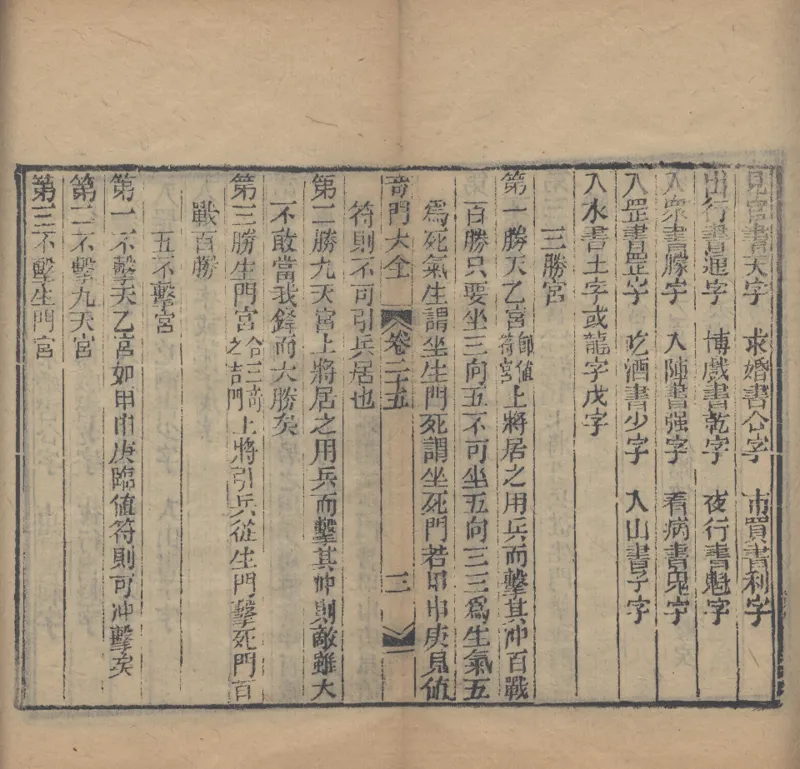 見官書天字　求婚書合字　市買書利字
出行書通字　博戲書乾字　夜行書魁字
入衆書滕字　入陣書强字　看病書鬼字
入罡書罡字　吃酒書少字　入山書子字
入水書土字或龍字戊字
三勝宮
第一勝天乙宮卽値符宮上將居之用兵而擊其冲百戰
百勝只要坐三向五不可坐五向三三爲生氣五
爲死氣生謂坐生門死謂坐死門若甲申庚見値
符則不可引兵居也
第二勝九天宮上將居之用兵而擊其冲則敵雖大
不敢當我鋒而大勝矣
第三勝生門宮合三奇之吉門上將引兵從生門擊死門百
戰百勝
五不擊宮
第一不擊天乙宮如甲申庚臨値符則可冲擊矣
第二不擊九天宮
第三不擊生門宮
奇門大全　卷二十五　三